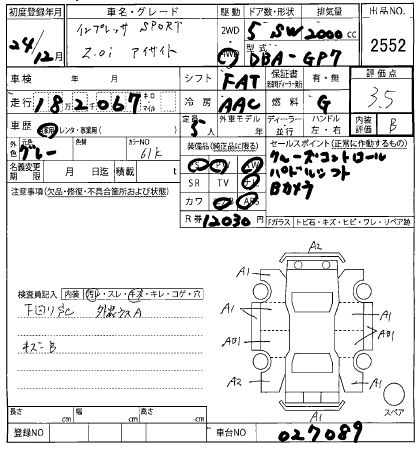 初度登録年月 車名・グレード 駆動 ドア数・形状 排気量 出品NO.
24/12月 インプレッサ SPORT 2WD 5 SW 2000 cc 2552
2.0i アイサイト 4WD 型式 DBA-GP7
車検 年 月 シフト FAT 保証書 有・無 評価点
走行 182067 キロ マイル 冷房 AAC 燃料 G 3.5
車歴 自家用・レンタ・事業用( ) 定員 5人 外車モデル 年 ディーラー 並行 ハンドル 左・右 内装評価 B
外色 元色 グレー 色替 カラーNO 61K
装備品(純正品に限る) セールスポイント(正常に作動するもの)
名義変更期限 月 日迄 積載 t
クルーズコントロール
パドルシフト
Bカメラ
SR TV ナビ
カワ
注意事項(欠品・修復・不具合箇所および状態)
R券 12030 円 Fガラス トビ石・キズ・ヒビ・ワレ・リペア跡
A2
A1 A1
検査員記入 内装 汚レ・スレ・キズ・キレ・コゲ・穴
下回りSC 外装キズA
A1 A1
AB1 AB1
キズ－B
A2 A1
A1
スペア
長さ cm 幅 cm 高さ cm
登録NO 車台NO 027089